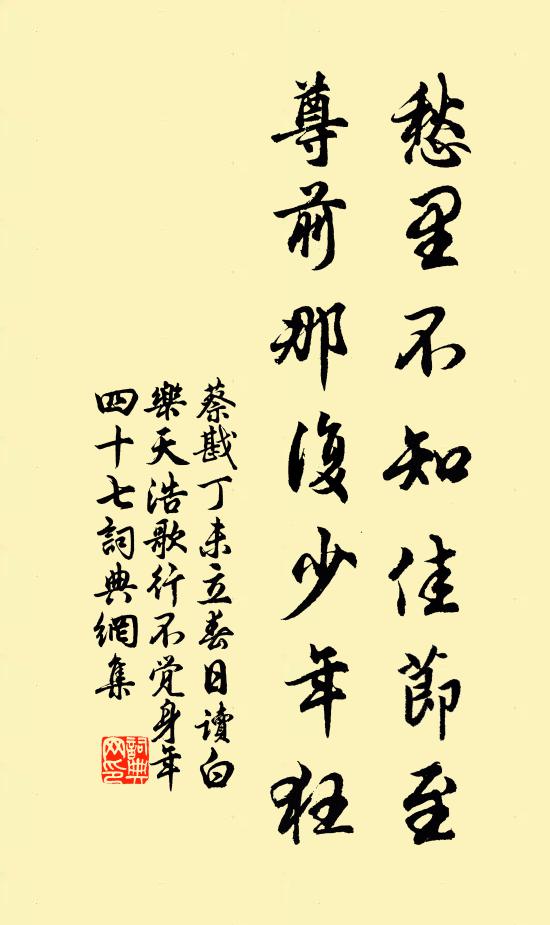 愁里不知佳節至
尊前那復少年狂
蔡戡丁未立春日讀白
樂天浩歌行不覺身年
四十七詞典網集
詞典網印